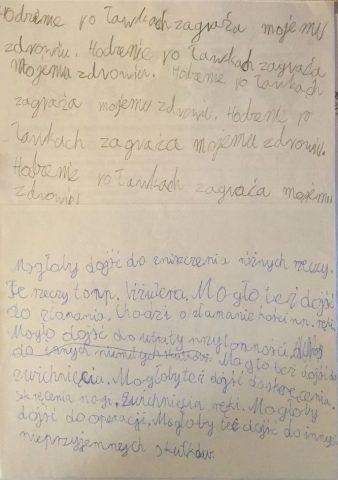 Hodzenie po ławkach zagraża mojemu
zdrowiu. Hodzenie po ławkach zagraża
mojemu zdrowiu. Hodzenie po ławkach
zagraża mojemu zdrowiu. Hodzenie po
ławkach zagraża mojemu zdrowiu.
Hodzenie po ławkach zagraża mojemu
zdrowiu
Mogłoby dojść do zniszczenia różnych rzeczy.
Te rzeczy to np. biżuteria. Mogło też dojść
do złamania. Chodzi o złamanie kości np. ręki.
Mogło dojść do utraty przytomności,
do innych niemiłych skutków. Mogło też dojść do
zwichnięcia. Mogłoby też dojść do skręcenia.
skręcenia nogi. Zwichnięcia ręki. Mogłoby
dojść do operacji. Mogłoby też dojść do innych
nieprzyjemnych skutków.